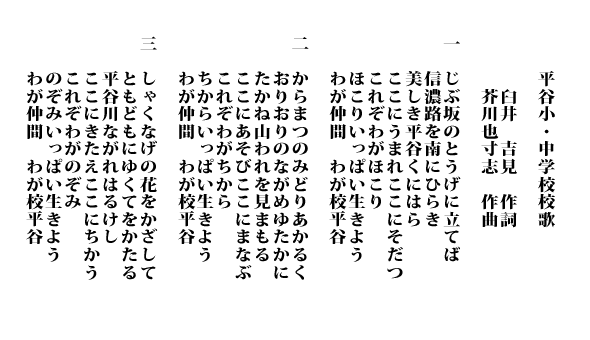 平谷小・中学校校歌
臼井　吉見　作詞
芥川也寸志　作曲
一
じぶ坂のとうげに立てば
信濃路を南にひらき
美しき平谷くにはら
ここにうまれここにそだつ
これぞわがほこり
ほこりいっぱい生きよう
わが仲間　わが校平谷
二
からまつのみどりあかるく
おりおりのながめゆたかに
たかね山われを見まもる
ここにあそびここにまなぶ
これぞわがちから
ちからいっぱい生きよう
わが仲間　わが校平谷
三
しゃくなげの花をかざして
ともどもにゆくてをかたる
平谷川ながれはるけし
ここにきたえここにちかう
これぞわがのぞみ
のぞみいっぱい生きよう
わが仲間　わが校平谷